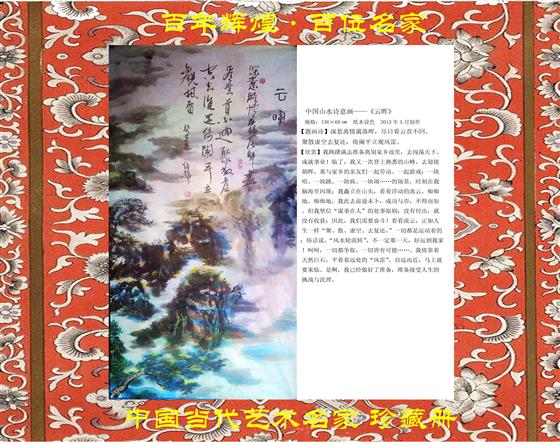 百年辉煌·百位名家
云晖
中国山水诗意画——《云晖》
规格：136×68㎝ 纸本设色 2013年5月创作
【题画诗】深惹离情霭落晖，尽日看云首不回。
聚散虚空去复还，倚阑平立观风雷。
【欣赏】我踌躇满志准备离别家乡故里，去闯荡天下，
成就事业！临了，我又一次登上熟悉的山峰，去迎接
朝晖，那与家乡的亲友们一起劳动，一起游戏；一块
唱，一块跳，一块疯，一块闹……的场景，时刻在我
脑海里闪现；我矗立在山头，看着浮动的流云，痴痴
地，痴痴地，我此去前途未卜，成功与否，不得而知
，但我坚信“谋事在人”的处事原则；没有付出，就
没有收获；因此，我们需要奋斗！看着流云，正如人
生一样“聚、散、虚空、去复还。”一切都是运动着的
；俗话说，“风水轮流转”，不一定那一天，好运到我家
！呵呵，一切都争取，一切皆有可能……，我倚靠着
天然巨石，平看着远处的“风雷”，自远而近，马上就
要来临。是啊，我已经做好了准备，准备接受人生的
挑战与洗理。
中国当代艺术名家 珍藏册